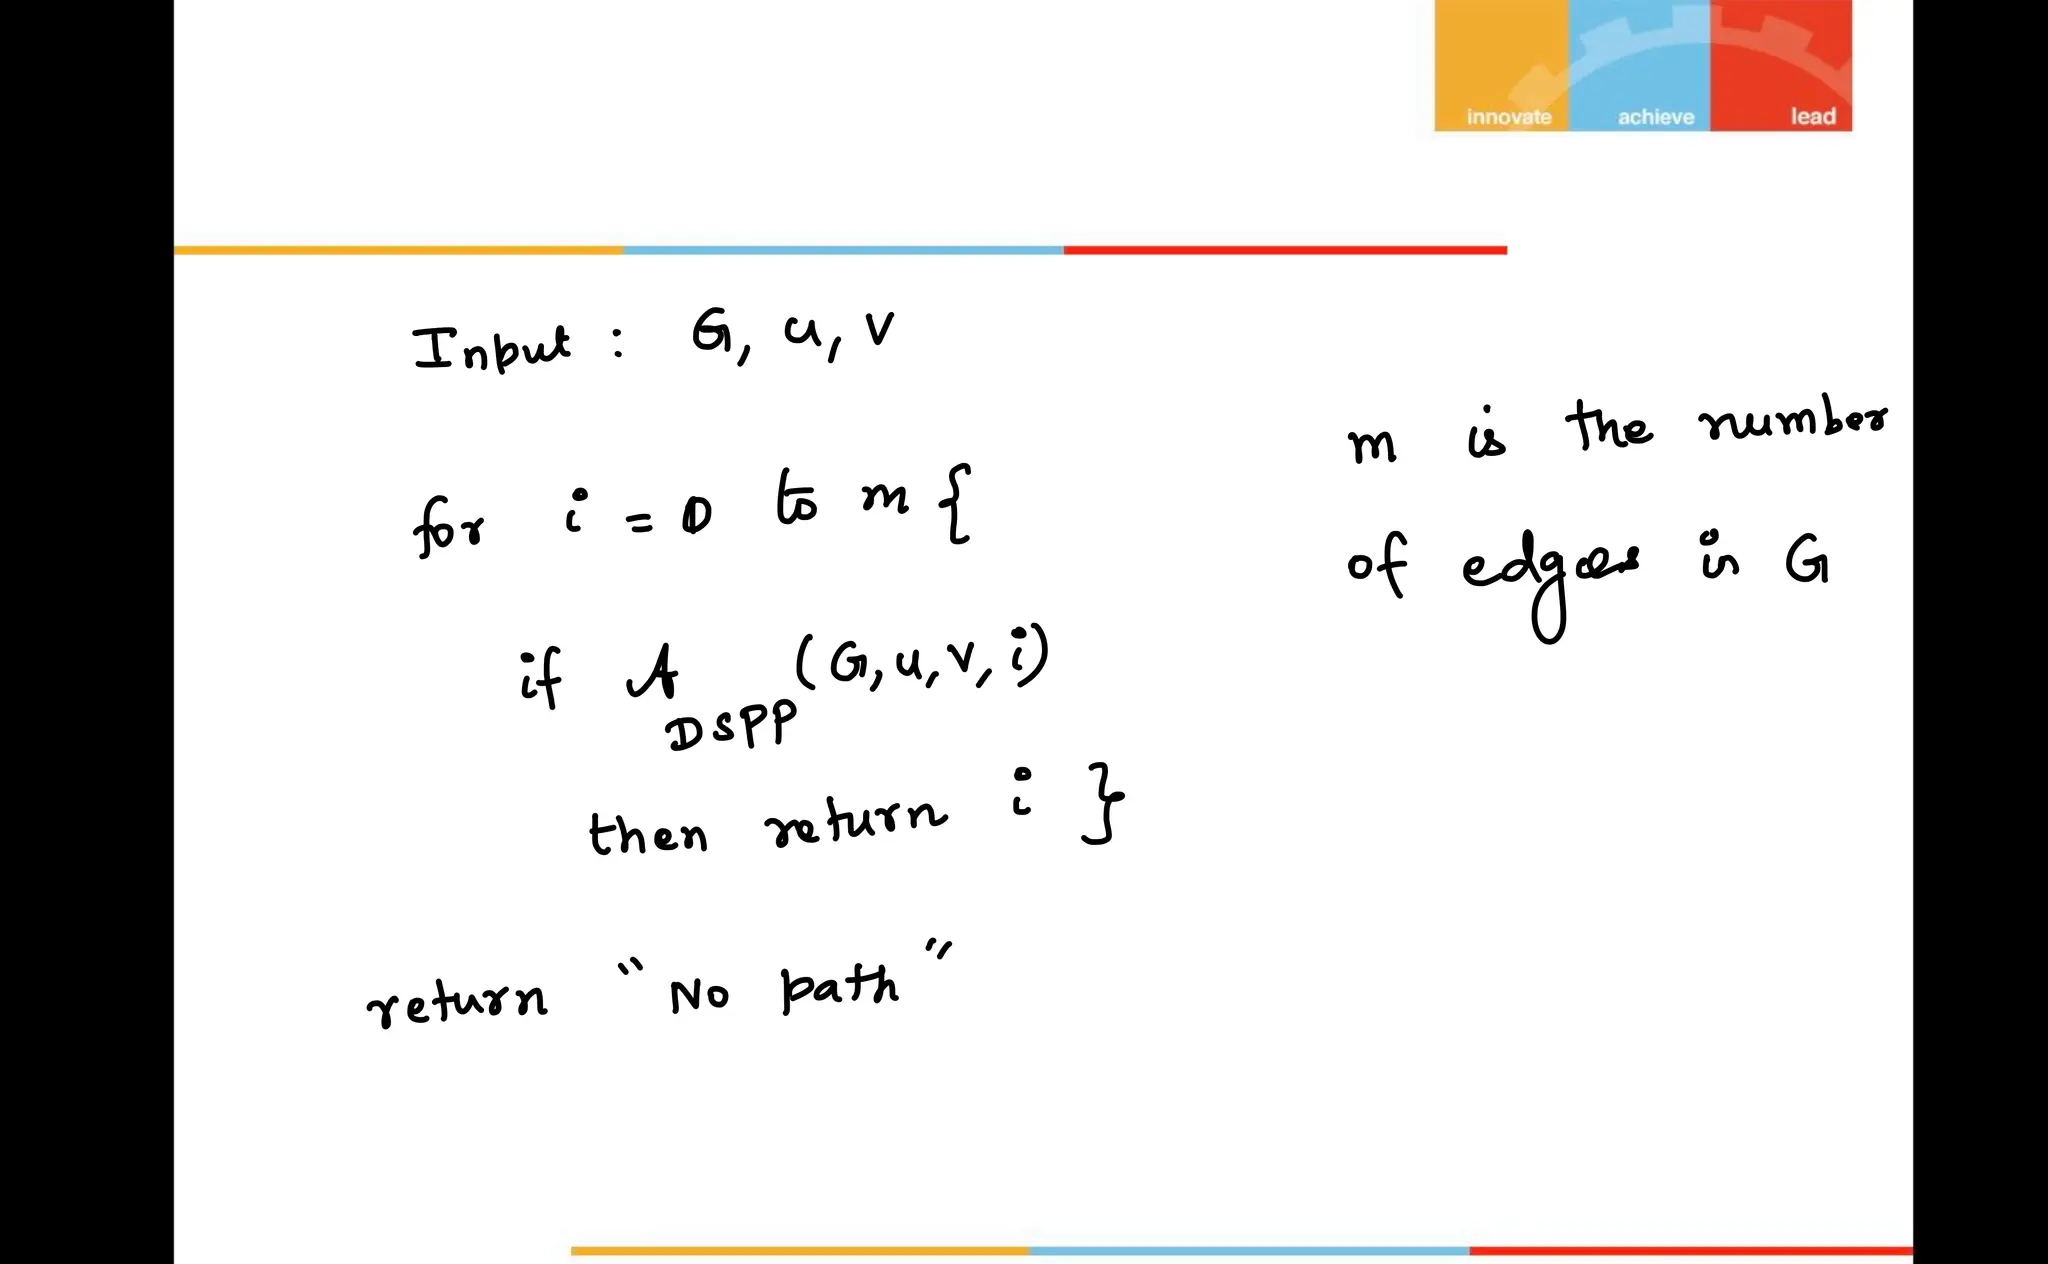 innovate achieve lead
Input : G, u, v
for i = 0 to m {
if A_DSPP (G, u, v, i)
then return i }
return "No path"
m is the number
of edges in G